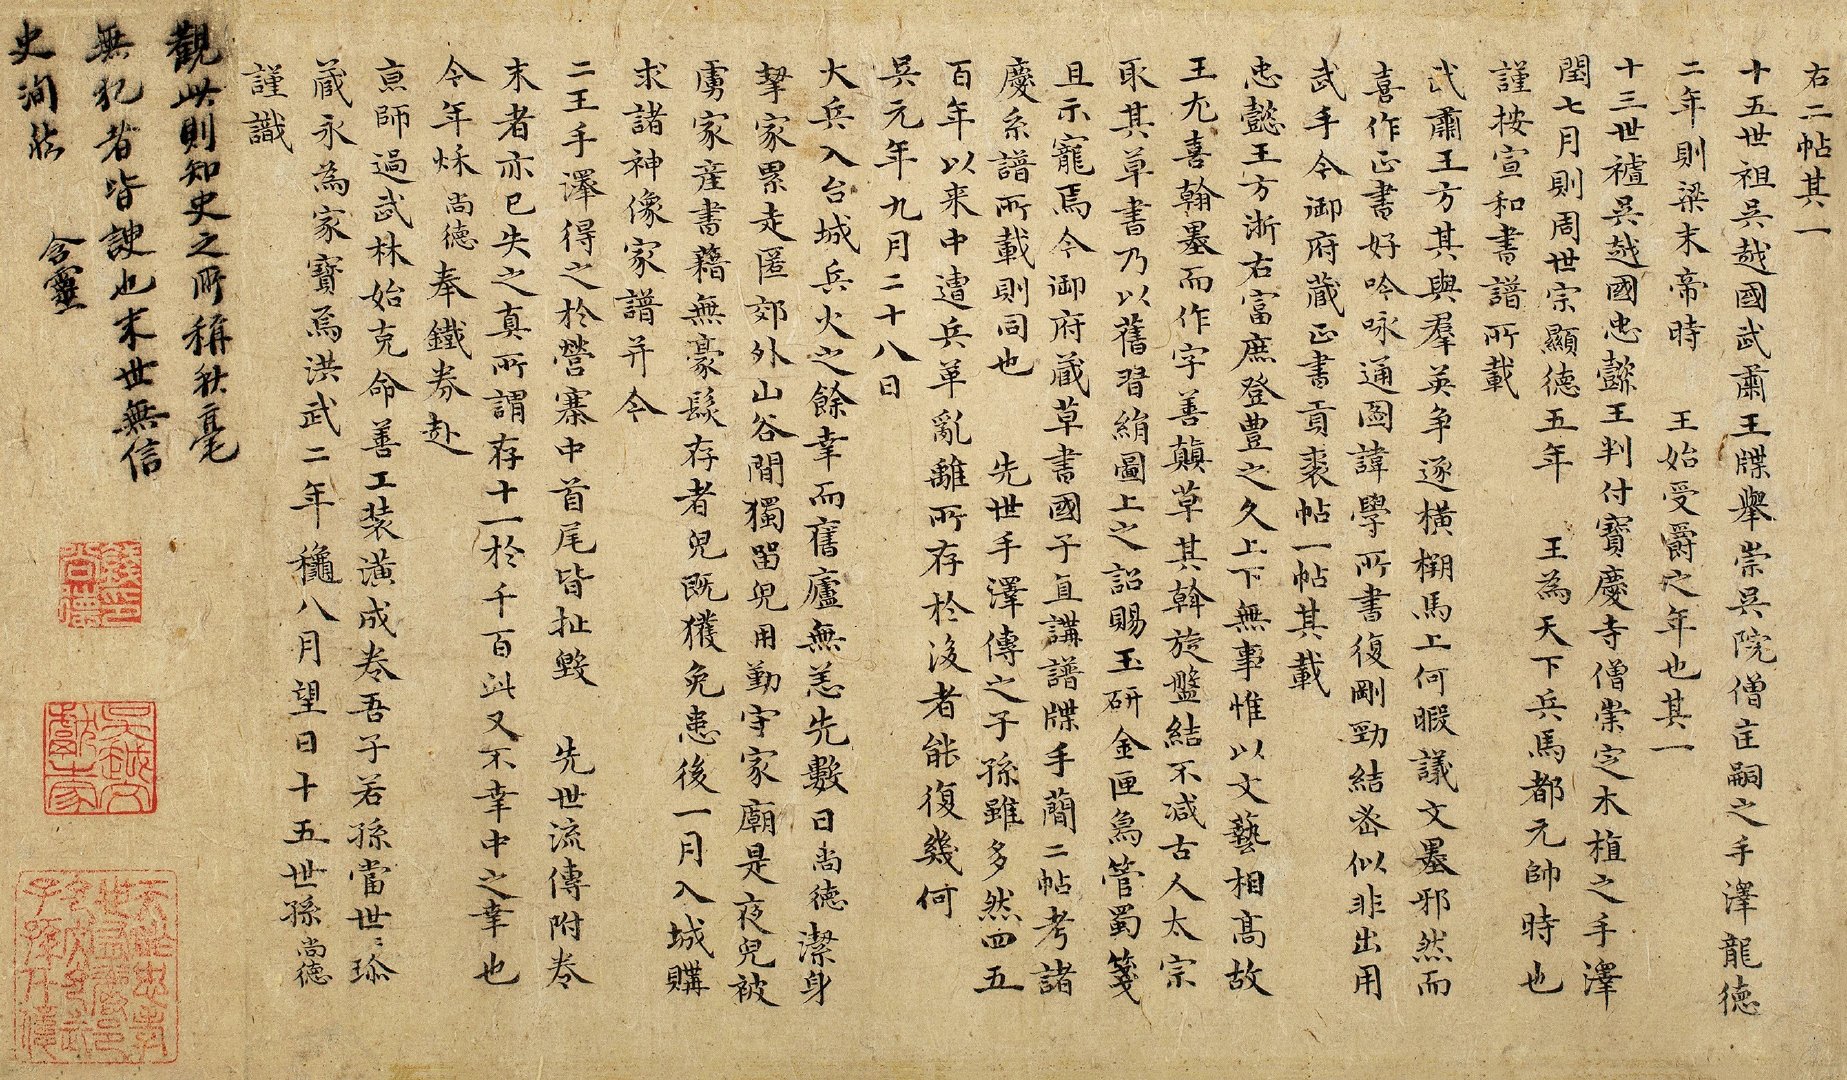 右二帖其一
十五世祖吳越國武肅王牒舉崇吳院僧嗣之手澤龍德
二年則梁末帝時　王始受爵之年也其一
十三世襱吳越國忠懿王判付寶慶寺僧崇定木植之手澤
閏七月則周世宗顯德五年　王為天下兵馬都元帥時也
謹按宣和書譜所載
武肅王方其與羣英爭逐橫槊馬上何暇議文墨邪然而
喜作正書好吟咏通圖諱學所書復剛勁結密似非出用
武手令御府藏正書貢裘帖一帖其載
忠懿王方浙右富庶登豊之久上下無事惟以文藝相高故
王尤喜翰墨而作字善顛草其斡旋盤結不減古人太宗
取其草書乃以舊習絹圖上之詔賜玉硯金匣象管蜀箋
且示寵焉今御府藏草書國子直講譜牒手蕳二帖考諸
慶系譜所載則同也　先世手澤傳之子孫雖多然四五
百年以来中遭兵革亂離所存於没者能復幾何
吳元年九月二十八日
大兵入台城兵火之餘幸而舊廬無恙先數日尚德潔身
挈家累走匿郊外山谷間獨留兒用勤守家廟是夜兒被
虜家產書籍無豪髮存者兒既獲免患後一月入城購
求諸神像家譜并今
二王手澤得之於營寨中首尾皆扯毀　先世流傳附卷
末者亦已失之真所謂存十一於千百此又不幸中之幸也
今年秌尚德奉鐵券赴
亰師過武林始克命善工装潢成卷吾子若孫當世〻珎
藏永為家寶焉洪武二年龝八月望日十五世孫尚德
謹識
觀此則知史之所稱秋毫
無犯者皆諛也末世無信
史洵然
含靈